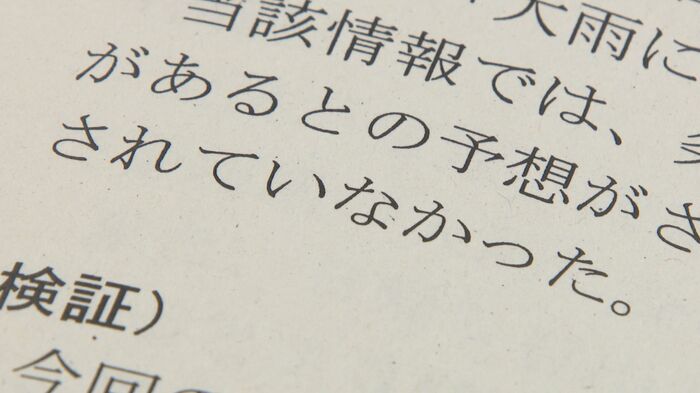 大雨に
当該情報では、
があるとの予想がさ
されていなかった。
検証）
今回の